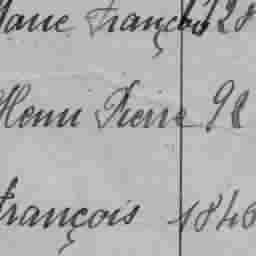 Marie François 128
Henri Pierre 98
François 1846